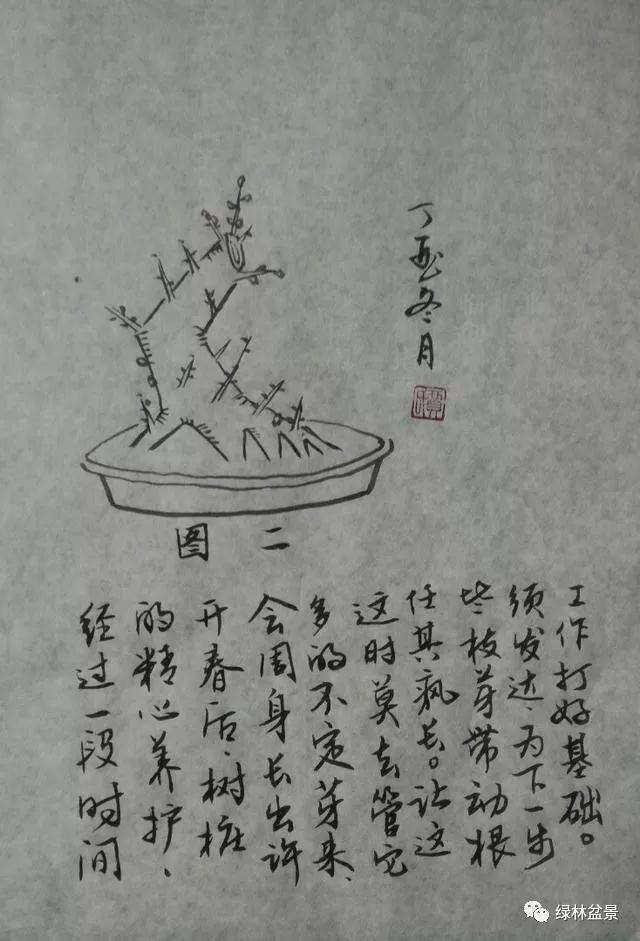 丁酉冬月
图二
经过一段时间
的精心养护、
开春后、树桩
会周身长出许
多的不定芽来、
这时莫去管它
任其疯长。让这
些枝芽带动根
须发达、为下一步
工作打好基础。
绿林盆景